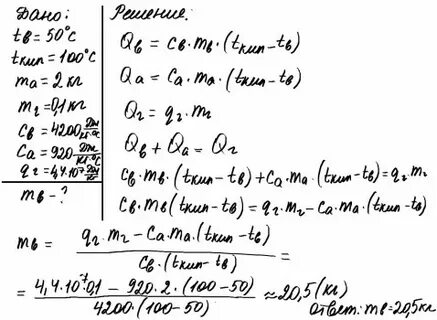 Дано:
tв = 50°C
tкип = 100°C
mа = 2 кг
mг = 0,1 кг
cв = 4200 Дж/кг·°C
cа = 920 Дж/кг·°C
qг = 4,4·10⁷ Дж/кг
mв - ?
Решение:
Qв = cв·mв·(tкип-tв)
Qа = cа·mа·(tкип-tв)
Qг = qг·mг
Qв + Qа = Qг
cв·mв·(tкип-tв)+cа·mа·(tкип-tв)=qг·mг
cв·mв(tкип-tв)=qг·mг-cа·mа·(tкип-tв)
mв = qг·mг-cа·mа·(tкип-tв) / cв·(tкип-tв) =
= 4,4·10⁷·0,1 - 920·2·(100-50) / 4200·(100-50) ≈ 20,5 (кг)
Ответ: mв=20,5кг